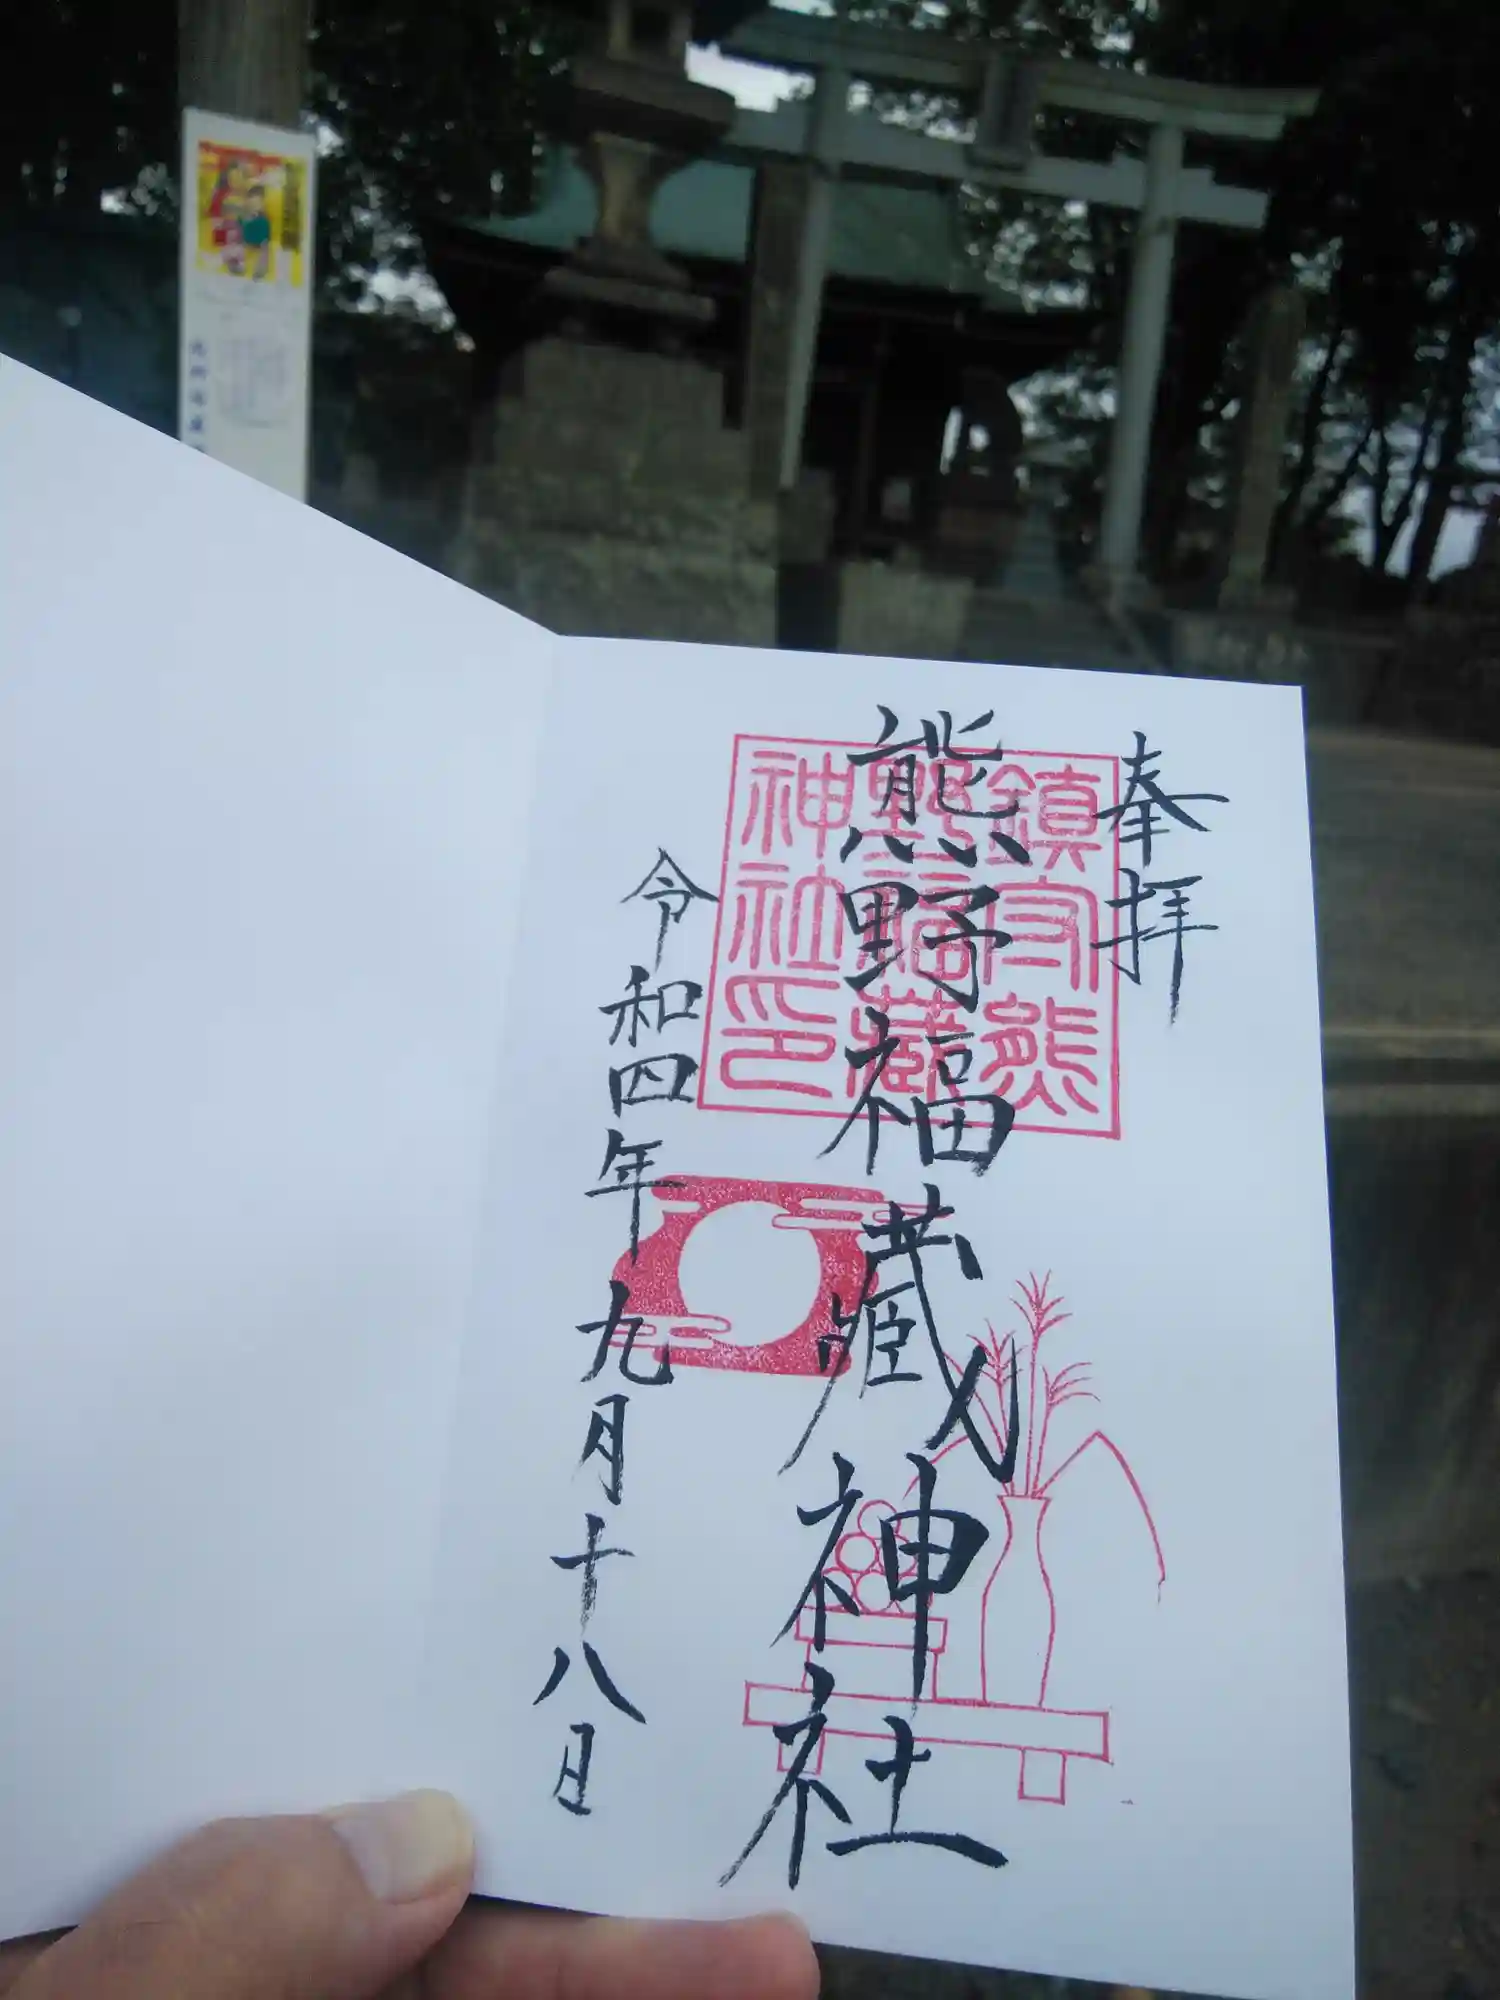 奉拝
熊野福蔵神社
令和四年九月十八日
鎮守熊
野福蔵
神社印